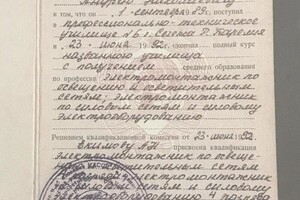 в том, что он 1 сентября 1979г. поступил
профессионально-техническое
училище №6 г. Сегежа
и 23 июня 1982г. полный курс
названного училища
с получением среднего образования
по профессии электромонтажник по
освещению и осветительным
сетям, электромонтажник
по силовым сетям и силовому
электрооборудованию
Решением квалификационной комиссии от 23 июня 1982
присвоена квалификация
электромонтажник по освеще-
осветительным сетям
электромонтажник
силовым сетям и силовому
электрооборудованию 4 разряда